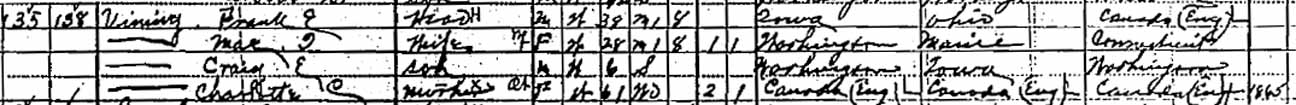 135 138 Vining, Frank E Head M W 38 M1 8 Iowa Ohio Canada (Eng)
— Mae, I Wife F W 28 M1 8 1 1 Washington Maine Connecticut
— Craig E son M W 6 S Washington Iowa Washington
1 — Charlotte C Mother F W 61 Wd 2 1 Canada (Eng) Canada (Eng) Canada (Eng) 1865